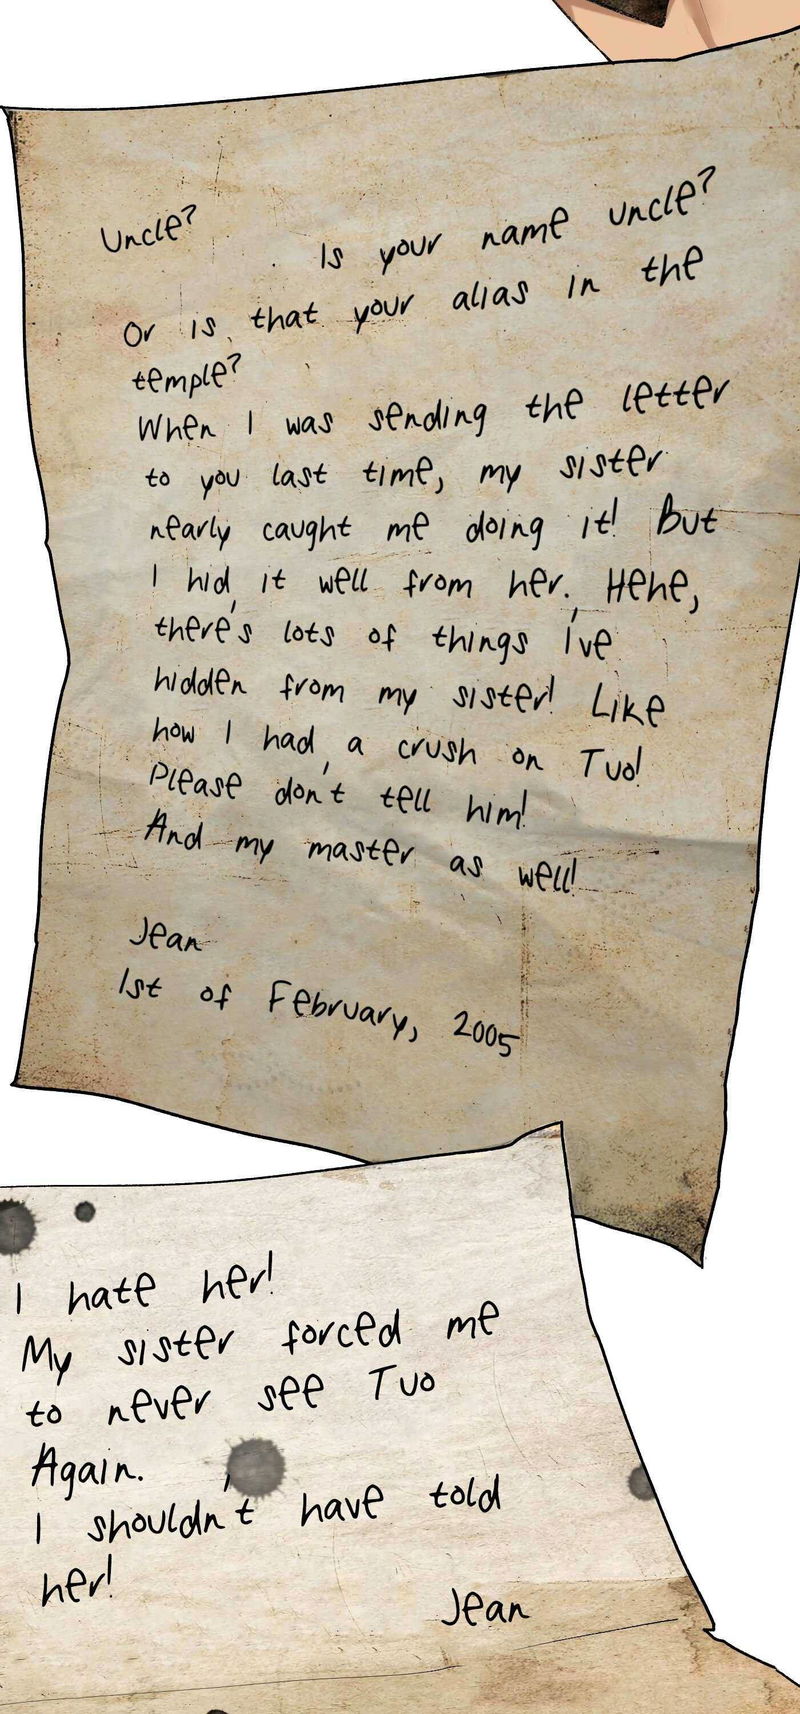 Uncle?
Is your name uncle?
Or is that your alias in the
temple?
When I was sending the letter
to you last time, my sister
nearly caught me doing it! But
I hid it well from her. Hehe,
there's lots of things I've
hidden from my sister! Like
how I had a crush on Tuo!
Please don't tell him!
And my master as well!
Jean
1st of February, 2005
I hate her!
My sister forced me
to never see Tuo
Again.
I shouldn't have told
her!
Jean